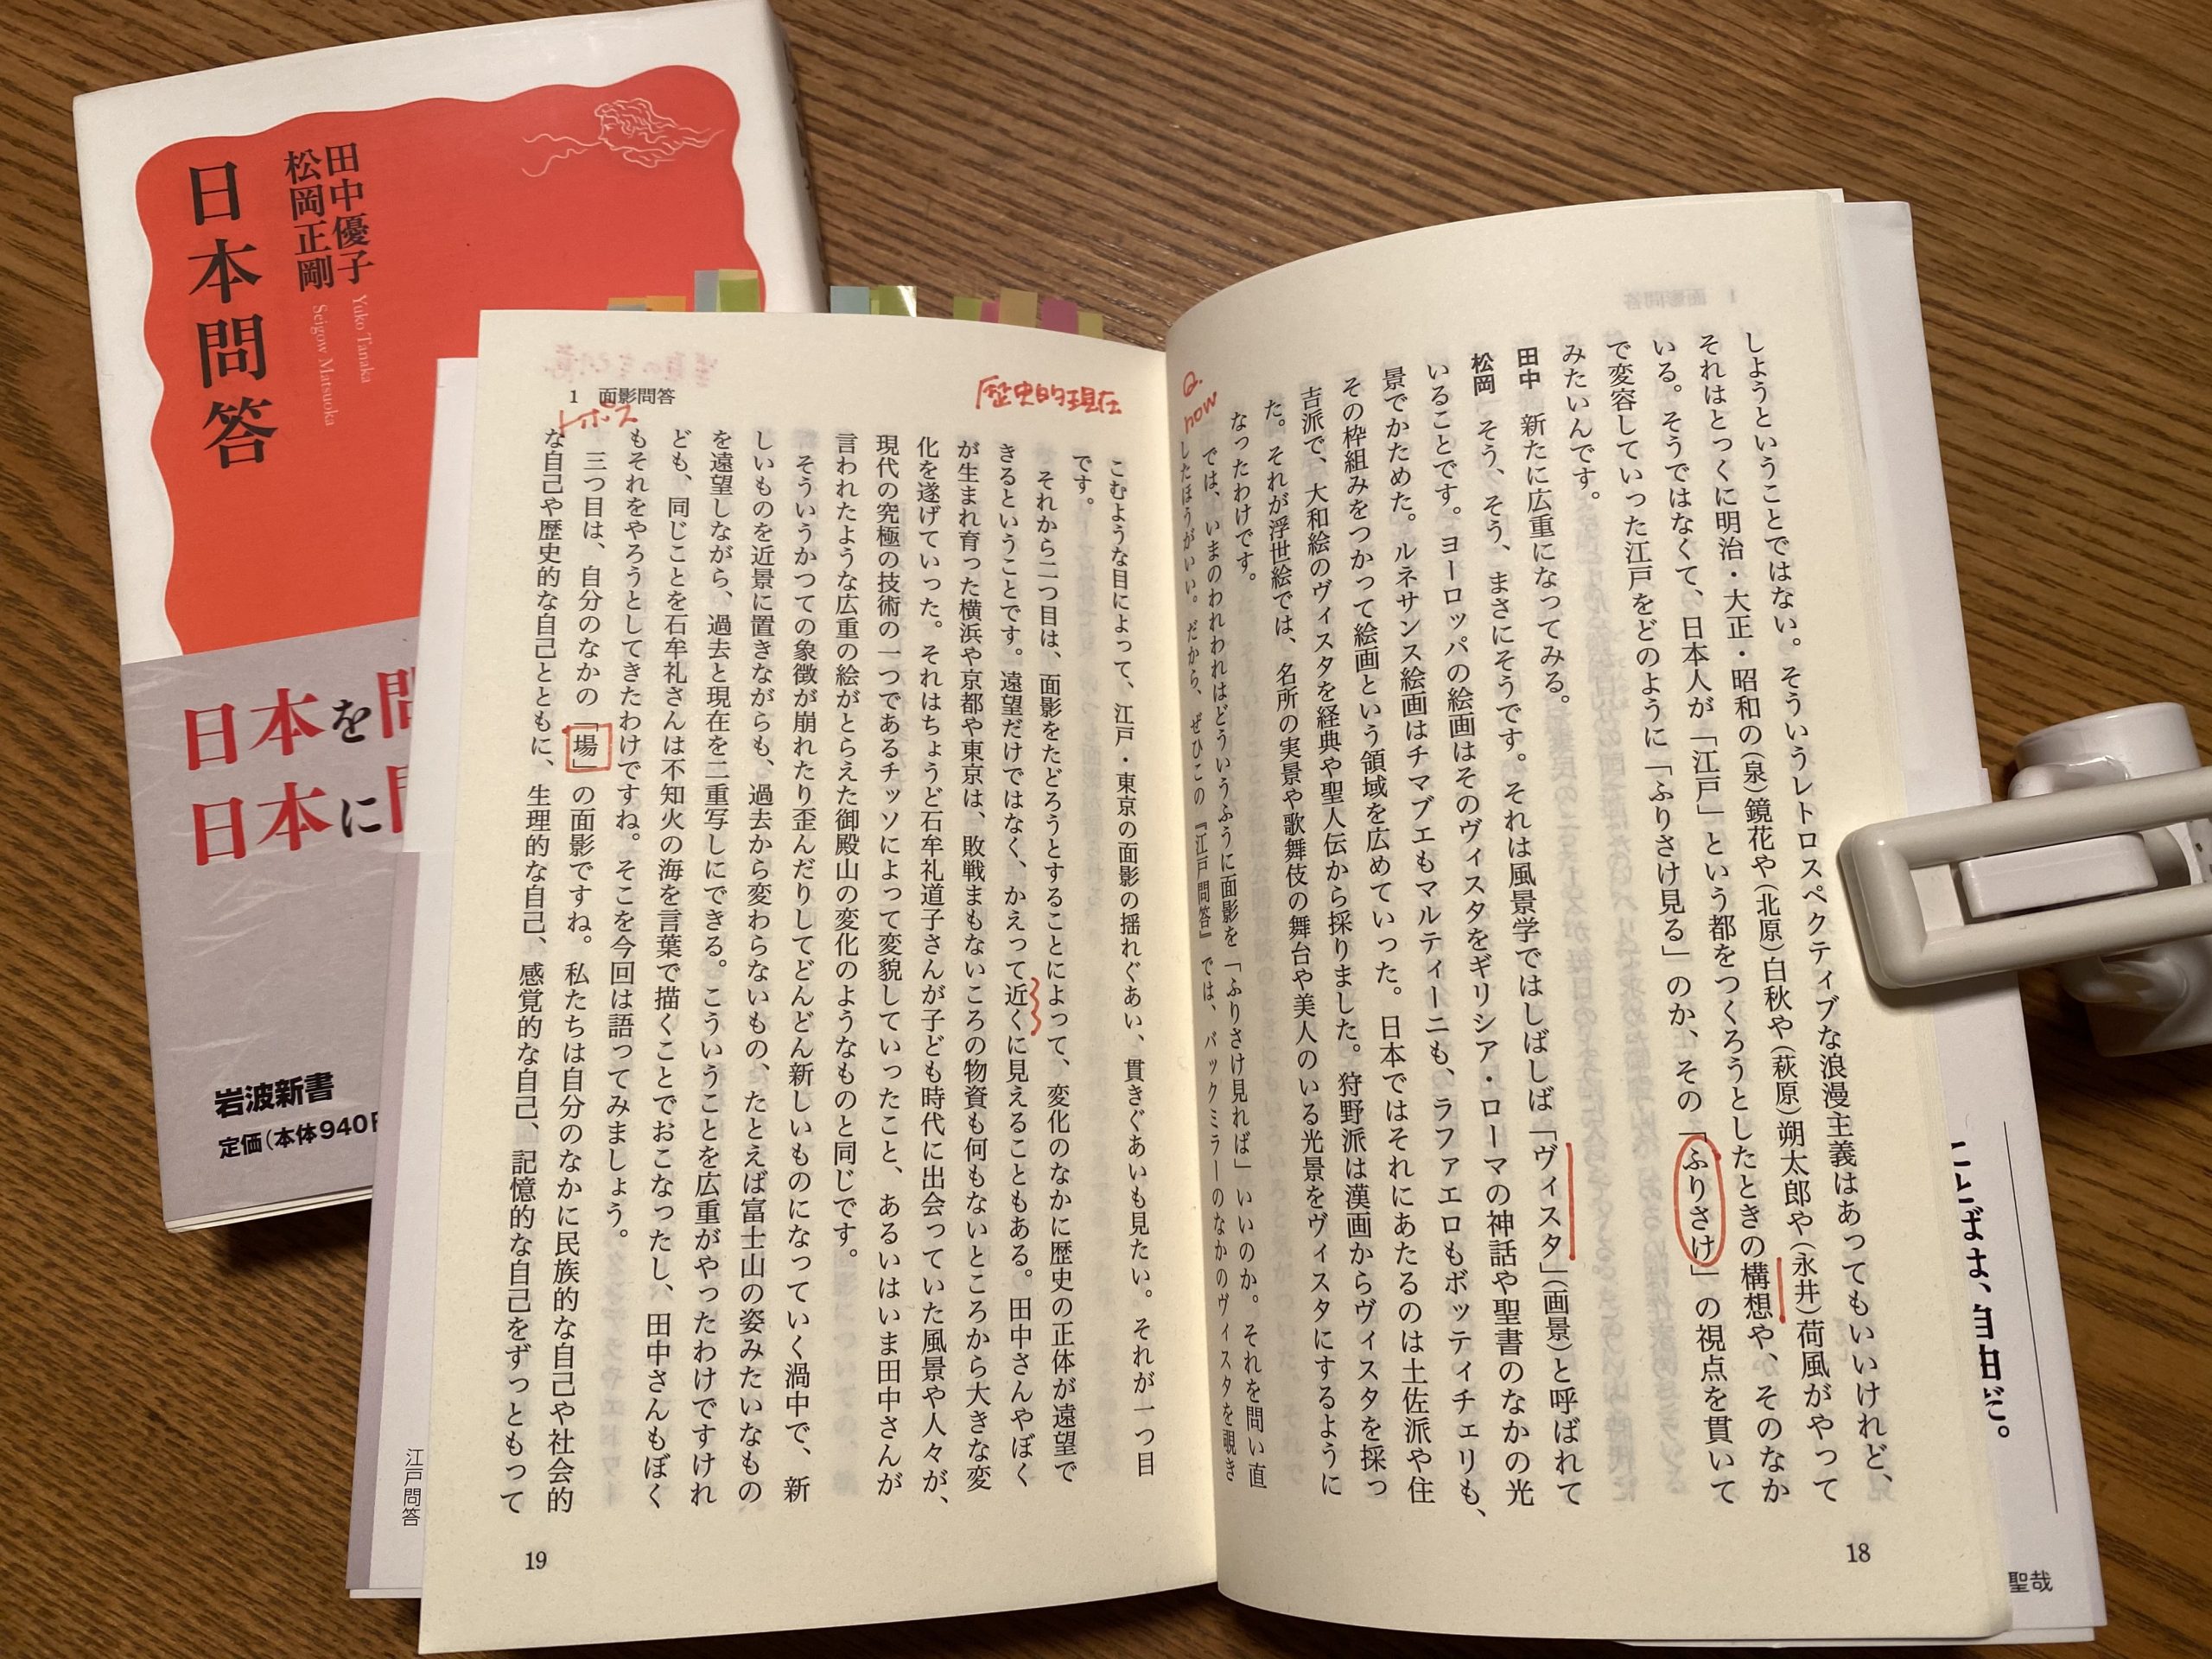 日本問答
田中優子
松岡正剛
Yuko Tanaka
Seigow Matsuoka
日本を問
日本に
岩波新書
定価(本体940円
しようということではない。そういうレトロスペクティブな浪漫主義はあってもいいけれど、
それはとっくに明治・大正・昭和の(泉)鏡花や(北原)白秋や(萩原)朔太郎や(永井)荷風がやって
いる。そうではなくて、日本人が「江戸」という都をつくろうとしたときの構想や、そのなか
で変容していった江戸をどのように「ふりさけ見る」のか、その「ふりさけ」の視点を貫いて
みたいんです。
田中 新たに広重になってみる。
松岡 そう、そう、まさにそうです。それは風景学ではしばしば「ヴィスタ」(画景)と呼ばれて
いることです。ヨーロッパの絵画はそのヴィスタをギリシア・ローマの神話や聖書のなかの光
景でかためた。ルネサンス絵画はチマブエもマルティーニも、ラファエロもボッティチェリも、
その枠組みをつかって絵画という領域を広めていった。日本ではそれにあたるのは土佐派や住
吉派で、大和絵のヴィスタを経典や聖人伝から採りました。狩野派は漢画からヴィスタを採っ
た。それが浮世絵では、名所の実景や歌舞伎の舞台や美人のいる光景をヴィスタにするように
なったわけです。
では、いまのわれわれはどういうふうに面影を「ふりさけ見れば」いいのか。それを問い直
したほうがいい。だから、ぜひこの『江戸問答』では、バックミラーのなかのヴィスタを覗き
18
Q.
how
歴史的現在
1 面影問答
トポス
こむような目によって、江戸・東京の面影の揺れぐあい、貫きぐあいも見たい。それが一つ目
です。
それから二つ目は、面影をたどろうとすることによって、変化のなかに歴史の正体が遠望で
きるということです。遠望だけではなく、かえって近くに見えることもある。田中さんやぼく
が生まれ育った横浜や京都や東京は、敗戦まもないころの物資も何もないところから大きな変
化を遂げていった。それはちょうど石牟礼道子さんが子ども時代に出会っていた風景や人々が、
現代の究極の技術の一つであるチッソによって変貌していったこと、あるいはいま田中さんが
言われたような広重の絵がとらえた御殿山の変化のようなものと同じです。
そういうかつての象徴が崩れたり歪んだりしてどんどん新しいものになっていく渦中で、新
しいものを近景に置きながらも、過去から変わらないもの、たとえば富士山の姿みたいなもの
を遠望しながら、過去と現在を二重写しにできる。こういうことを広重がやったわけですけれ
ども、同じことを石牟礼さんは不知火の海を言葉で描くことでおこなったし、田中さんもぼく
もそれをやろうとしてきたわけですね。そこを今回は語ってみましょう。
三つ目は、自分のなかの「場」の面影ですね。私たちは自分のなかに民族的な自己や社会的
な自己や歴史的な自己とともに、生理的な自己、感覚的な自己、記憶的な自己をずっともって
19
江戸問答
ことばは、自由だ。
聖哉